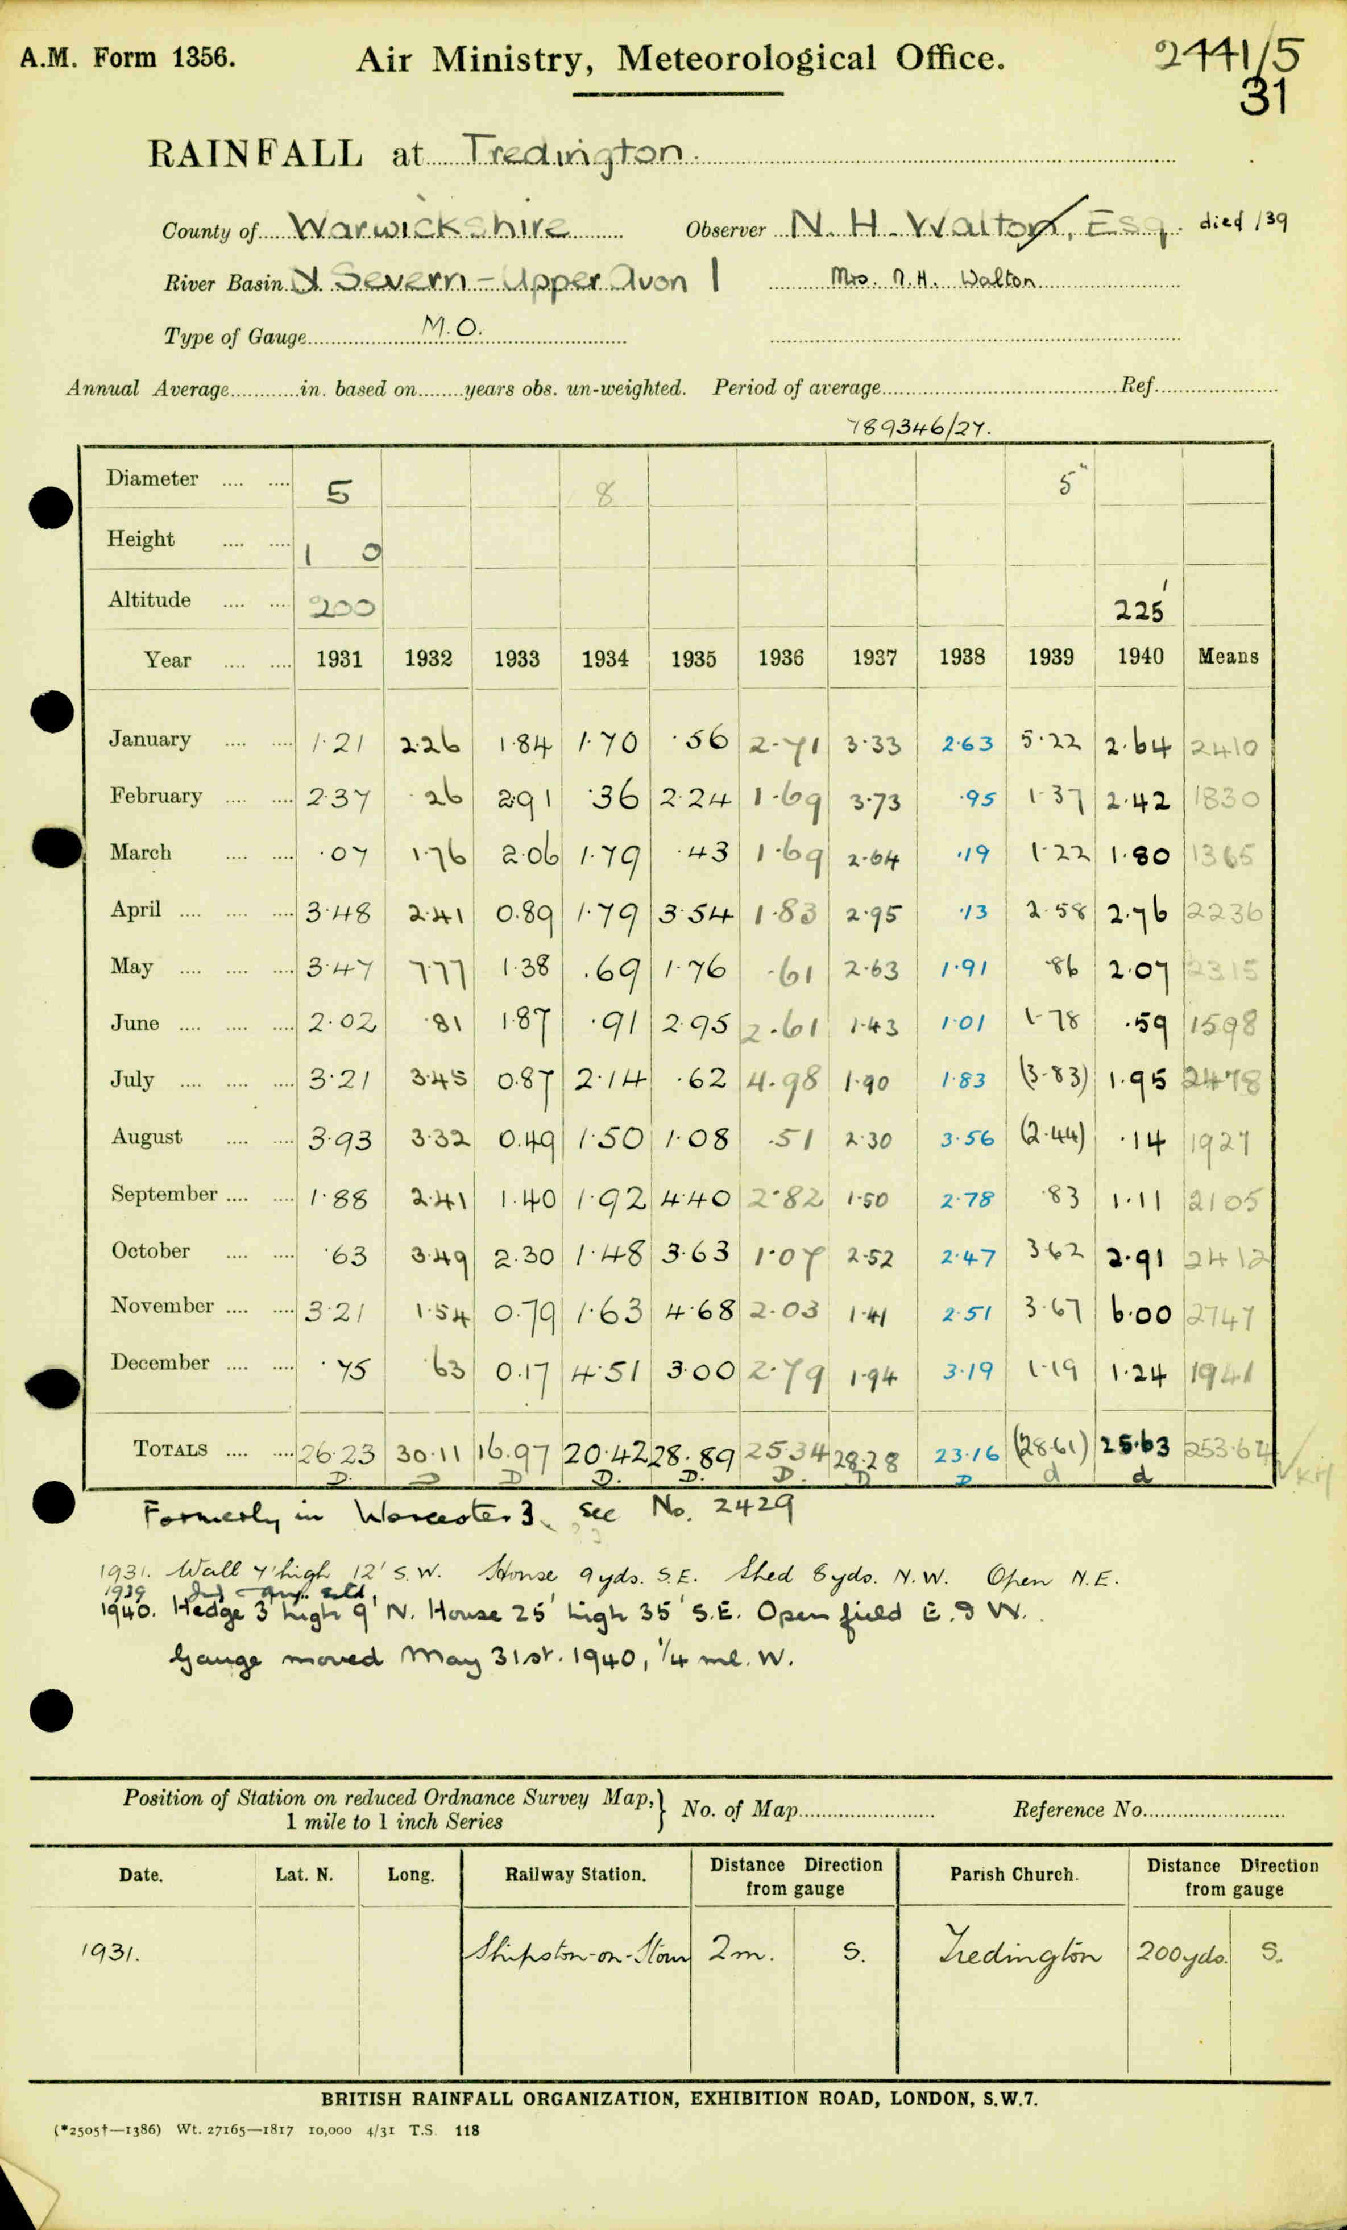 A.M. Form 1356. Air Ministry, Meteorological Office. 2441/5
31
RAINFALL at Tredington.
County of Warwickshire Observer N. H. Walton, Esq. died /39
River Basin Severn - Upper Avon 1 Mrs. N.H. Walton
Type of Gauge M.O.
Annual Average in. based on years obs. un-weighted. Period of average Ref.
789346/27.
Diameter 5 8 5"
Height 1 0
Altitude 200 225'
Year 1931 1932 1933 1934 1935 1936 1937 1938 1939 1940 Means
January 1.21 2.26 1.84 1.70 .56 2.71 3.33 2.63 5.22 2.64 2410
February 2.37 .26 2.91 .36 2.24 1.69 3.73 .95 1.37 2.42 1830
March .07 1.76 2.06 1.79 .43 1.69 2.64 .19 1.22 1.80 1365
April 3.48 2.41 0.89 1.79 3.54 1.83 2.95 .13 2.58 2.76 2236
May 3.47 7.77 1.38 .69 1.76 .61 2.63 1.91 .86 2.07 2315
June 2.02 .81 1.87 .91 2.95 2.61 1.43 1.01 1.78 .59 1598
July 3.21 3.45 0.87 2.14 .62 4.98 1.90 1.83 (3.83) 1.95 2478
August 3.93 3.32 0.49 1.50 1.08 .51 2.30 3.56 (2.44) .14 1927
September 1.88 2.41 1.40 1.92 4.40 2.82 1.50 2.78 .83 1.11 2105
October .63 3.49 2.30 1.48 3.63 1.07 2.52 2.47 3.62 2.91 2412
November 3.21 1.54 0.79 1.63 4.68 2.03 1.41 2.51 3.67 6.00 2747
December .75 .63 0.17 4.51 3.00 2.79 1.94 3.19 1.19 1.24 1941
TOTALS 26.23 30.11 16.97 20.42 28.89 25.34 28.28 23.16 (28.61) 25.63 253.64
D. D D D. D. D. D D d d √KH
Formerly in Worcester 3, see No. 2429
1931. Wall 7' high 12' S.W. House 9 yds. S.E. Shed 8 yds. N.W. Open N.E.
1939
1940. Hedge 3' high 9' N. House 25' high 35' S.E. Open field E. & W.
Gauge moved May 31st. 1940, 1/4 ml. W.
Position of Station on reduced Ordnance Survey Map, } No. of Map Reference No.
1 mile to 1 inch Series
Date. Lat. N. Long. Railway Station. Distance Direction from gauge Parish Church. Distance Direction from gauge
1931. Shipston-on-Stour 2 m. S. Tredington 200 yds. S.
BRITISH RAINFALL ORGANIZATION, EXHIBITION ROAD, LONDON, S.W.7.
(*2505†—1386) Wt. 27165—1817 10,000 4/31 T.S. 118